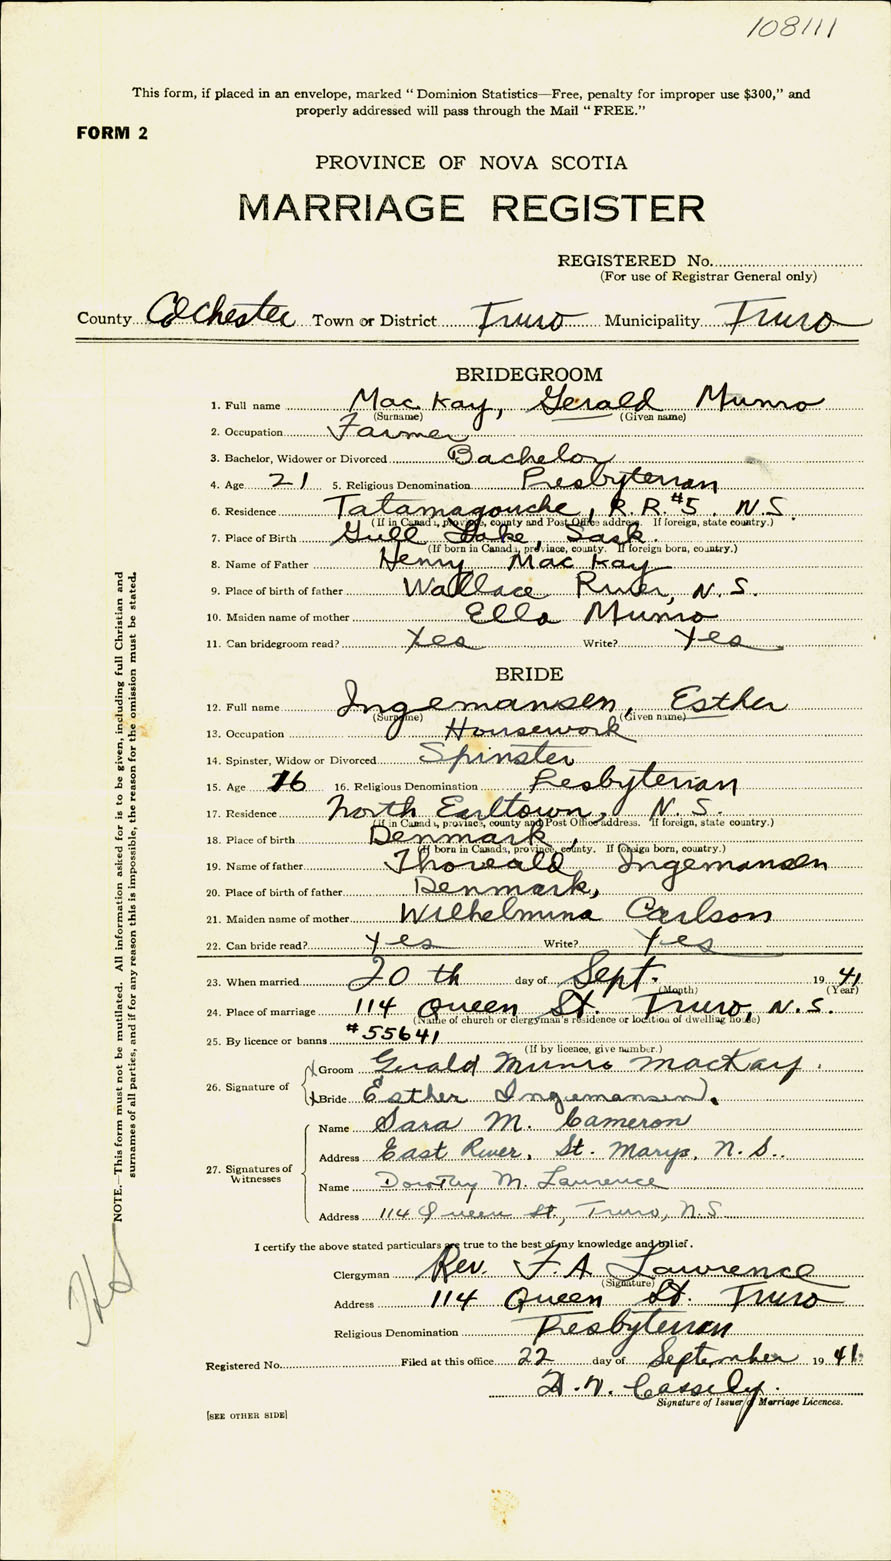 108111
This form, if placed in an envelope, marked “ Dominion Statistics—Free, penalty for improper use $300,” and
properly addressed will pass through the Mail “ FREE.”
FORM 2
PROVINCE OF NOVA SCOTIA
MARRIAGE REGISTER
REGISTERED No.
(For use of Registrar General only)
County Colchester Town or District Truro Municipality Truro
BRIDEGROOM
1. Full name MacKay, Gerald Munro
(Surname) (Given name)
2. Occupation Farmer
3. Bachelor, Widower or Divorced Bachelor
4. Age 21 5. Religious Denomination Presbyterian
6. Residence Tatamagouche, R.R. #5. N.S.
(If in Canada, province, county and Post Office address. If foreign, state country.)
7. Place of Birth Gull Lake, Sask.
(If born in Canada, province, county. If foreign born, country.)
8. Name of Father Henry MacKay
9. Place of birth of father Wallace River, N.S.
10. Maiden name of mother Ella Munro
11. Can bridegroom read? Yes Write? Yes
BRIDE
12. Full name Ingemansen, Esther
(Surname) (Given name)
13. Occupation Housework
14. Spinster, Widow or Divorced Spinster
15. Age 16. Religious Denomination Presbyterian
17. Residence North Earltown, N.S.
(If in Canada, province, county and Post Office address. If foreign, state country.)
18. Place of birth Denmark,
(If born in Canada, province, county. If foreign born, country.)
19. Name of father Thorvald Ingemansen
20. Place of birth of father Denmark,
21. Maiden name of mother Wilhelmina Carlson
22. Can bride read? Yes Write? Yes
23. When married 20th day of Sept. 1941
(Month) (Year)
24. Place of marriage 114 Queen St. Truro, N.S.
(Name of church or clergyman's residence or location of dwelling house)
25. By licence or banns #55641
(If by licence, give number.)
26. Signature of
Groom Gerald Munro MacKay.
Bride Esther Ingemansen.
27. Signatures of Witnesses
Name Sara M. Cameron
Address East River, St. Marys, N.S..
Name Dorothy M. Lawrence
Address 114 Queen St, Truro, N.S
I certify the above stated particulars are true to the best of my knowledge and belief.
Clergyman Rev. F. A. Lawrence
(Signature)
Address 114 Queen St. Truro
Religious Denomination Presbyterian
Registered No. Filed at this office 22 day of September 1941.
Cassidy.
Signature of Issuer of Marriage Licences.
[SEE OTHER SIDE]
NOTE.—This form must not be mutilated. All information asked for is to be given, including full Christian and
surnames of all parties, and if for any reason this is impossible, the reason for the omission must be stated.